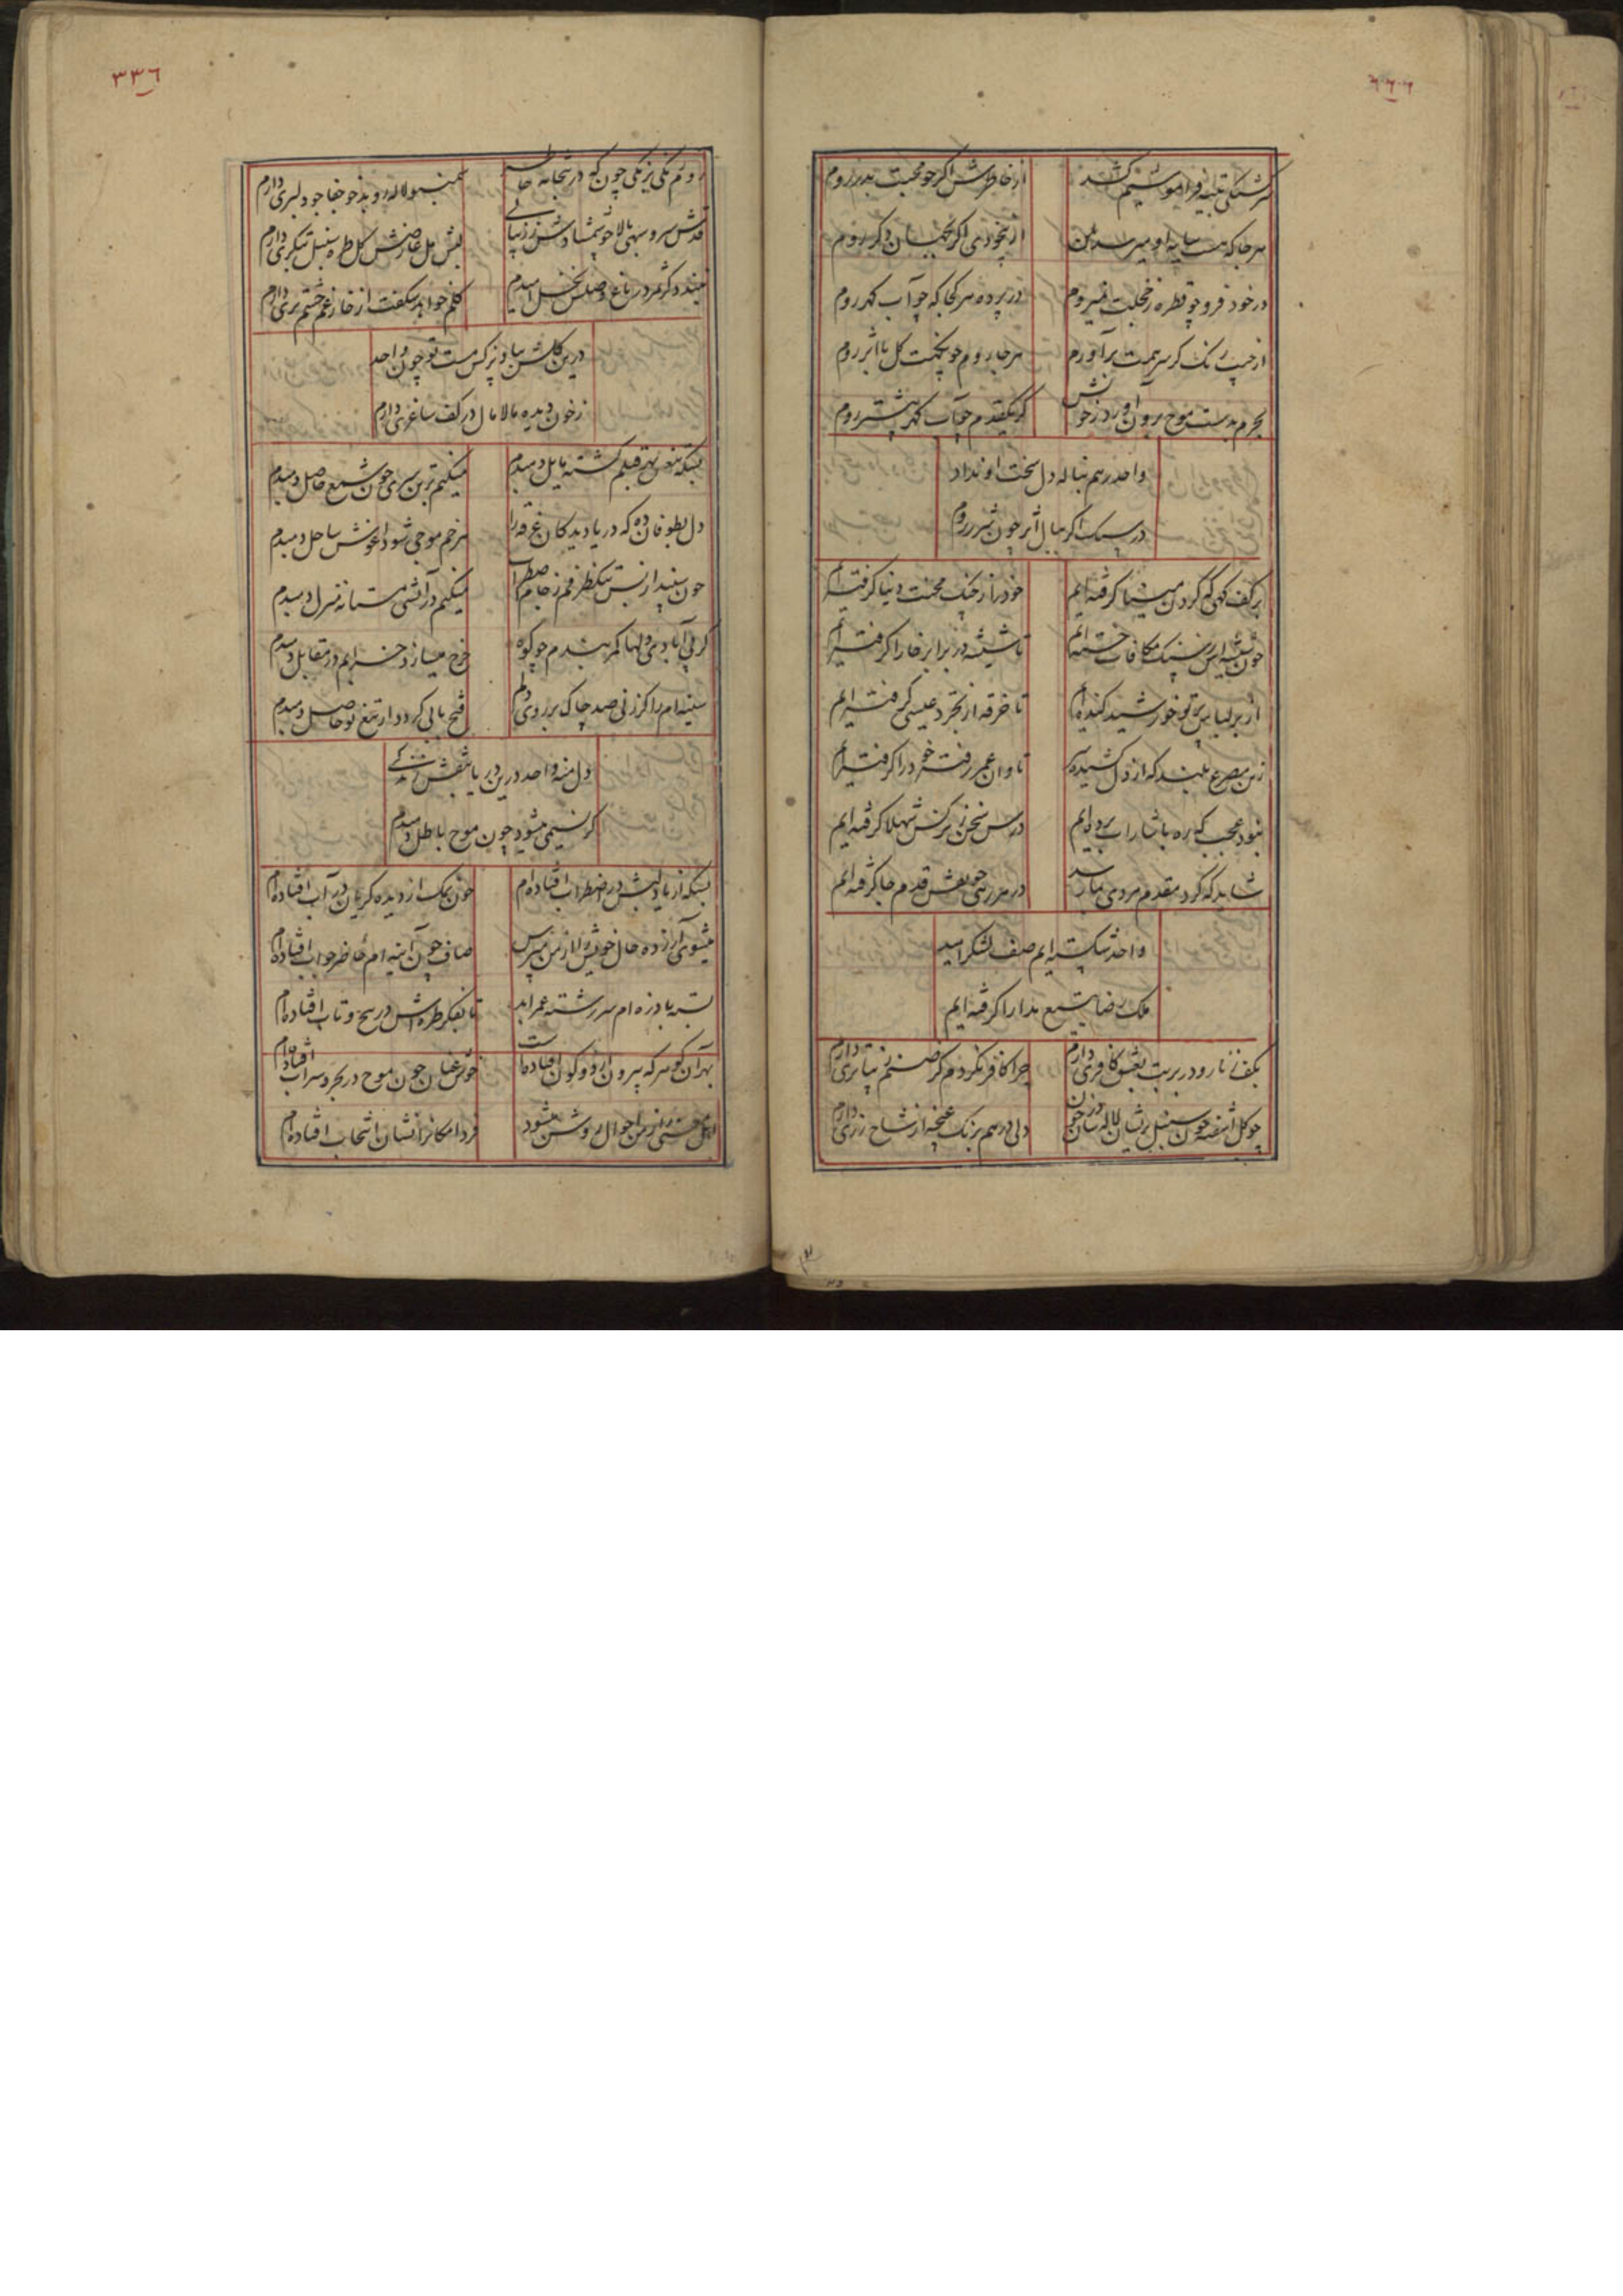 ۳۳۶
سرشتکی فراموشیم کشد
از خاطرش اکر چو محبت بدر روم
هر جا که هست سایه او میرسد بمن
از بیخودی اکر بجهان دکر روم
در خود فرو چو قطره ز خجلت نمیروم
در پرده هر کجا که چو آب کهر روم
از جیب رنک کر سر همت برآورم
هر جا روم چو نکهت کل با اثر روم
بحرم بدست موج برون آورد ز خویش
کر یکقدم چو آب کهر پیشتر روم
واحد رهم بناله دل سخت او نداد
در سنک اکر ببال اثر چون شرر روم
بر کف کهی که کردن مینا کرفته ایم
خود را ز چنک محنت دنیا کرفته ایم
چون شیشه ایمن از سنک مکافات خسته ایم
تا شیشه در برابر خارا کرفته ایم
از بر لباس پرتو خورشید کنده ایم
تا خرقه از تجرد عیسی کرفته ایم
زین مصرع بلند که از دل کشیده سر
تاوان عمر رفته خود را کرفته ایم
نبود عجب که ره باشارات برده ایم
درس سخن ز نرکس شهلا کرفته ایم
شاید که کرد مقدم مردی بما رسد
در هر رهی چو نقش قدم جا کرفته ایم
واحد شکسته ایم صف لشکر امید
ملک رضا بتیغ مدارا کرفته ایم
بکف زنار و در بر بت بعشق کافری دارم
چرا کافر نکردم کز صنم زیباتری دارم
چو کل آشفته چون سنبل پریشان لاله سان در خون
دلی درهم برنک غنچه از شاخ زری دارم
روم یکی چون که در بتخانه
سمنبو لاله رو بدخو جفاجو دلبری دارم
قدش سرو سهی بالا خوش شمشادش ز زیبایی
لبش مل عارضش کل طره سنبل شکری دارم
نبندد کر ثمر در باغ وصلش نخل امیدم
کلم خواهد شکفت از خار غم چشم تری دارم
درین کلشن بیاد نرکس مست تو چون واحد
ز خون دیده مالامال در کف ساغری دارم
بسکه تیغش بهر قتلم کشته مایل دمبدم
میکنم ترتیب سری چون شمع حاصل دمبدم
دل بطوفان ده که دریا دیدکان غرقه را
هر خم موجی شود آغوش ساحل دمبدم
چون سپند از بس نیکنظر رفتم ز جا از اضطراب
میکنم در آتشی مستانه منزل دمبدم
کر پی آبادی دلها کمر بندم چو کوه
چرخ میسازد خرابم در مقابل دمبدم
سینه ام را کر زنی صد چاک بر روی دلم
فتح بابی کردد از تیغ تو حاصل دمبدم
دل منه واحد درین دریا بنقش زندکی
کز نسیمی میشود چون موج باطل دمبدم
بسکه از یاد لبش در اضطراب افتاده ام
چون نمک از دیده کریان در آب افتاده ام
میشوی آزرده حال خویش را از من مپرس
صاف چون آیینه ام حاضر جواب افتاده ام
بسته با دزه ام سررشته عمر ابد
تا بفکر طره اش در پیچ و تاب افتاده ام
بهر آن کوهر که بیرون از دو کون افتاده است
خوش عنان چون موج در بحر و سراب افتاده ام
اهل معنی را ز من احوال روشن میشود
فرد امکانرا نشان انتخاب افتاده ام